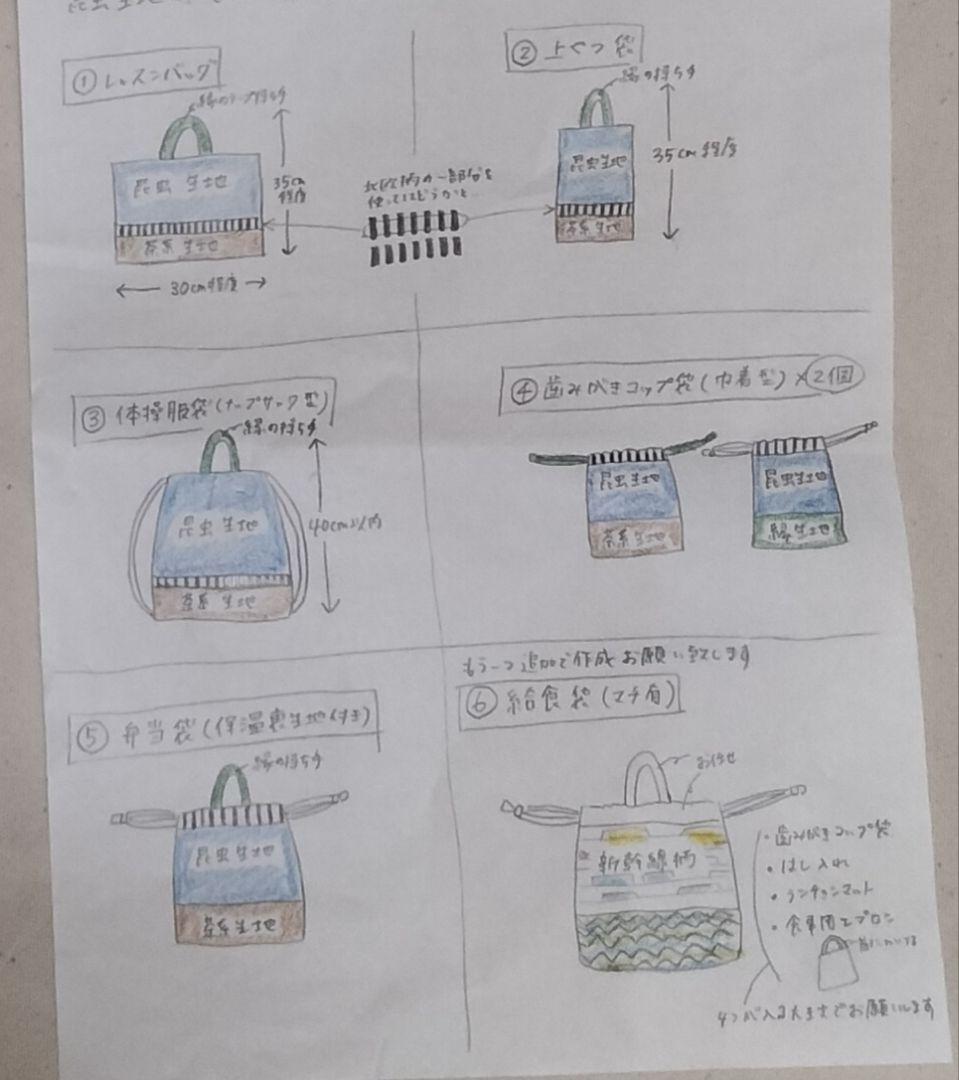 ① レッスンバッグ
緑のテープ持ち手
昆虫生地
茶系生地
35cm
程度
30cm程度
北欧柄の一部分を
使ってはどうかと…
② 上ぐつ袋
緑の持ち手
昆虫生地
茶系生地
35cm程度
③ 体操服袋(ナップサック型)
緑の持ち手
昆虫生地
茶系生地
40cm以内
④ 歯みがきコップ袋(巾着型)×2個
昆虫生地
茶系生地
昆虫生地
緑生地
⑤ 弁当袋(保温裏生地付き)
緑の持ち手
昆虫生地
茶系生地
もう一つ追加で作成お願い致します
⑥ 給食袋(マチ有)
お任せ
新幹線柄
・歯みがきコップ袋
・はし入れ
・ランチョンマット
・食事用エプロン
4つが入る大きさでお願いします